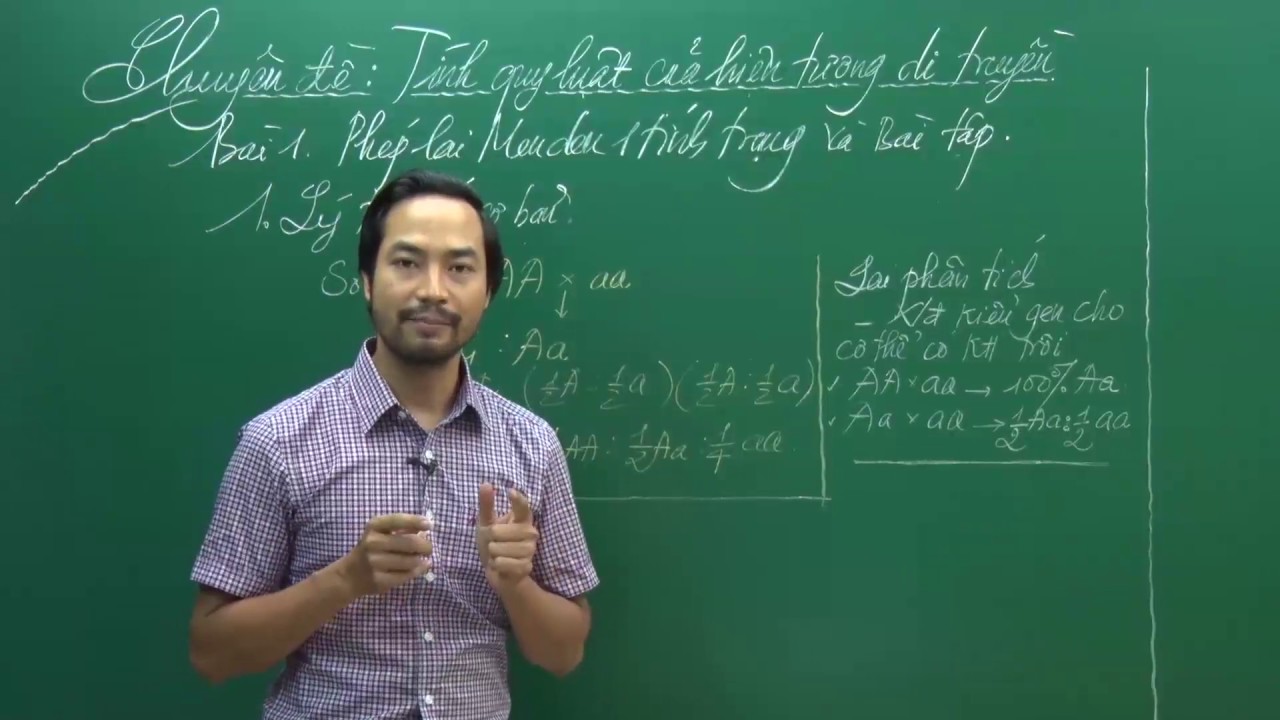 Chuyên đề: Tính quy luật của hiện tượng di truyền
Bài 1. Phép lai Menden 1 tính trạng và Bài tập.
1. Lý bản.
Sơ AA × aa
↓
: Aa
(1/2A - 1/2a)(1/2A : 1/2a)
AA : 1/2Aa : 1/4 aa.
Lai phân tích
- K/t kiểu gen cho
cơ thể có KH trội
AA × aa → 100% Aa
Aa × aa → 1/2Aa : 1/2 aa